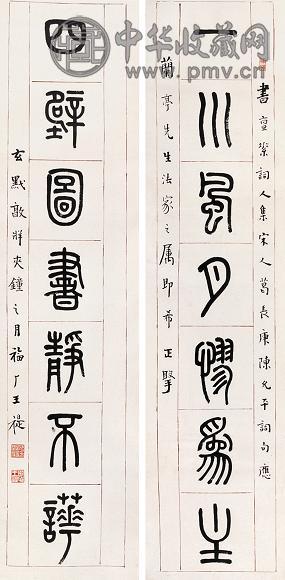 中华收藏网
www.pmv.cn
一川風月憀爲主
四壁圖書靜不譁
書 詞人集宋人葛長庚陳允平詞句應
蘭亭先生法家之属即希正
玄黓敦牂夾鐘之月福厂王禔